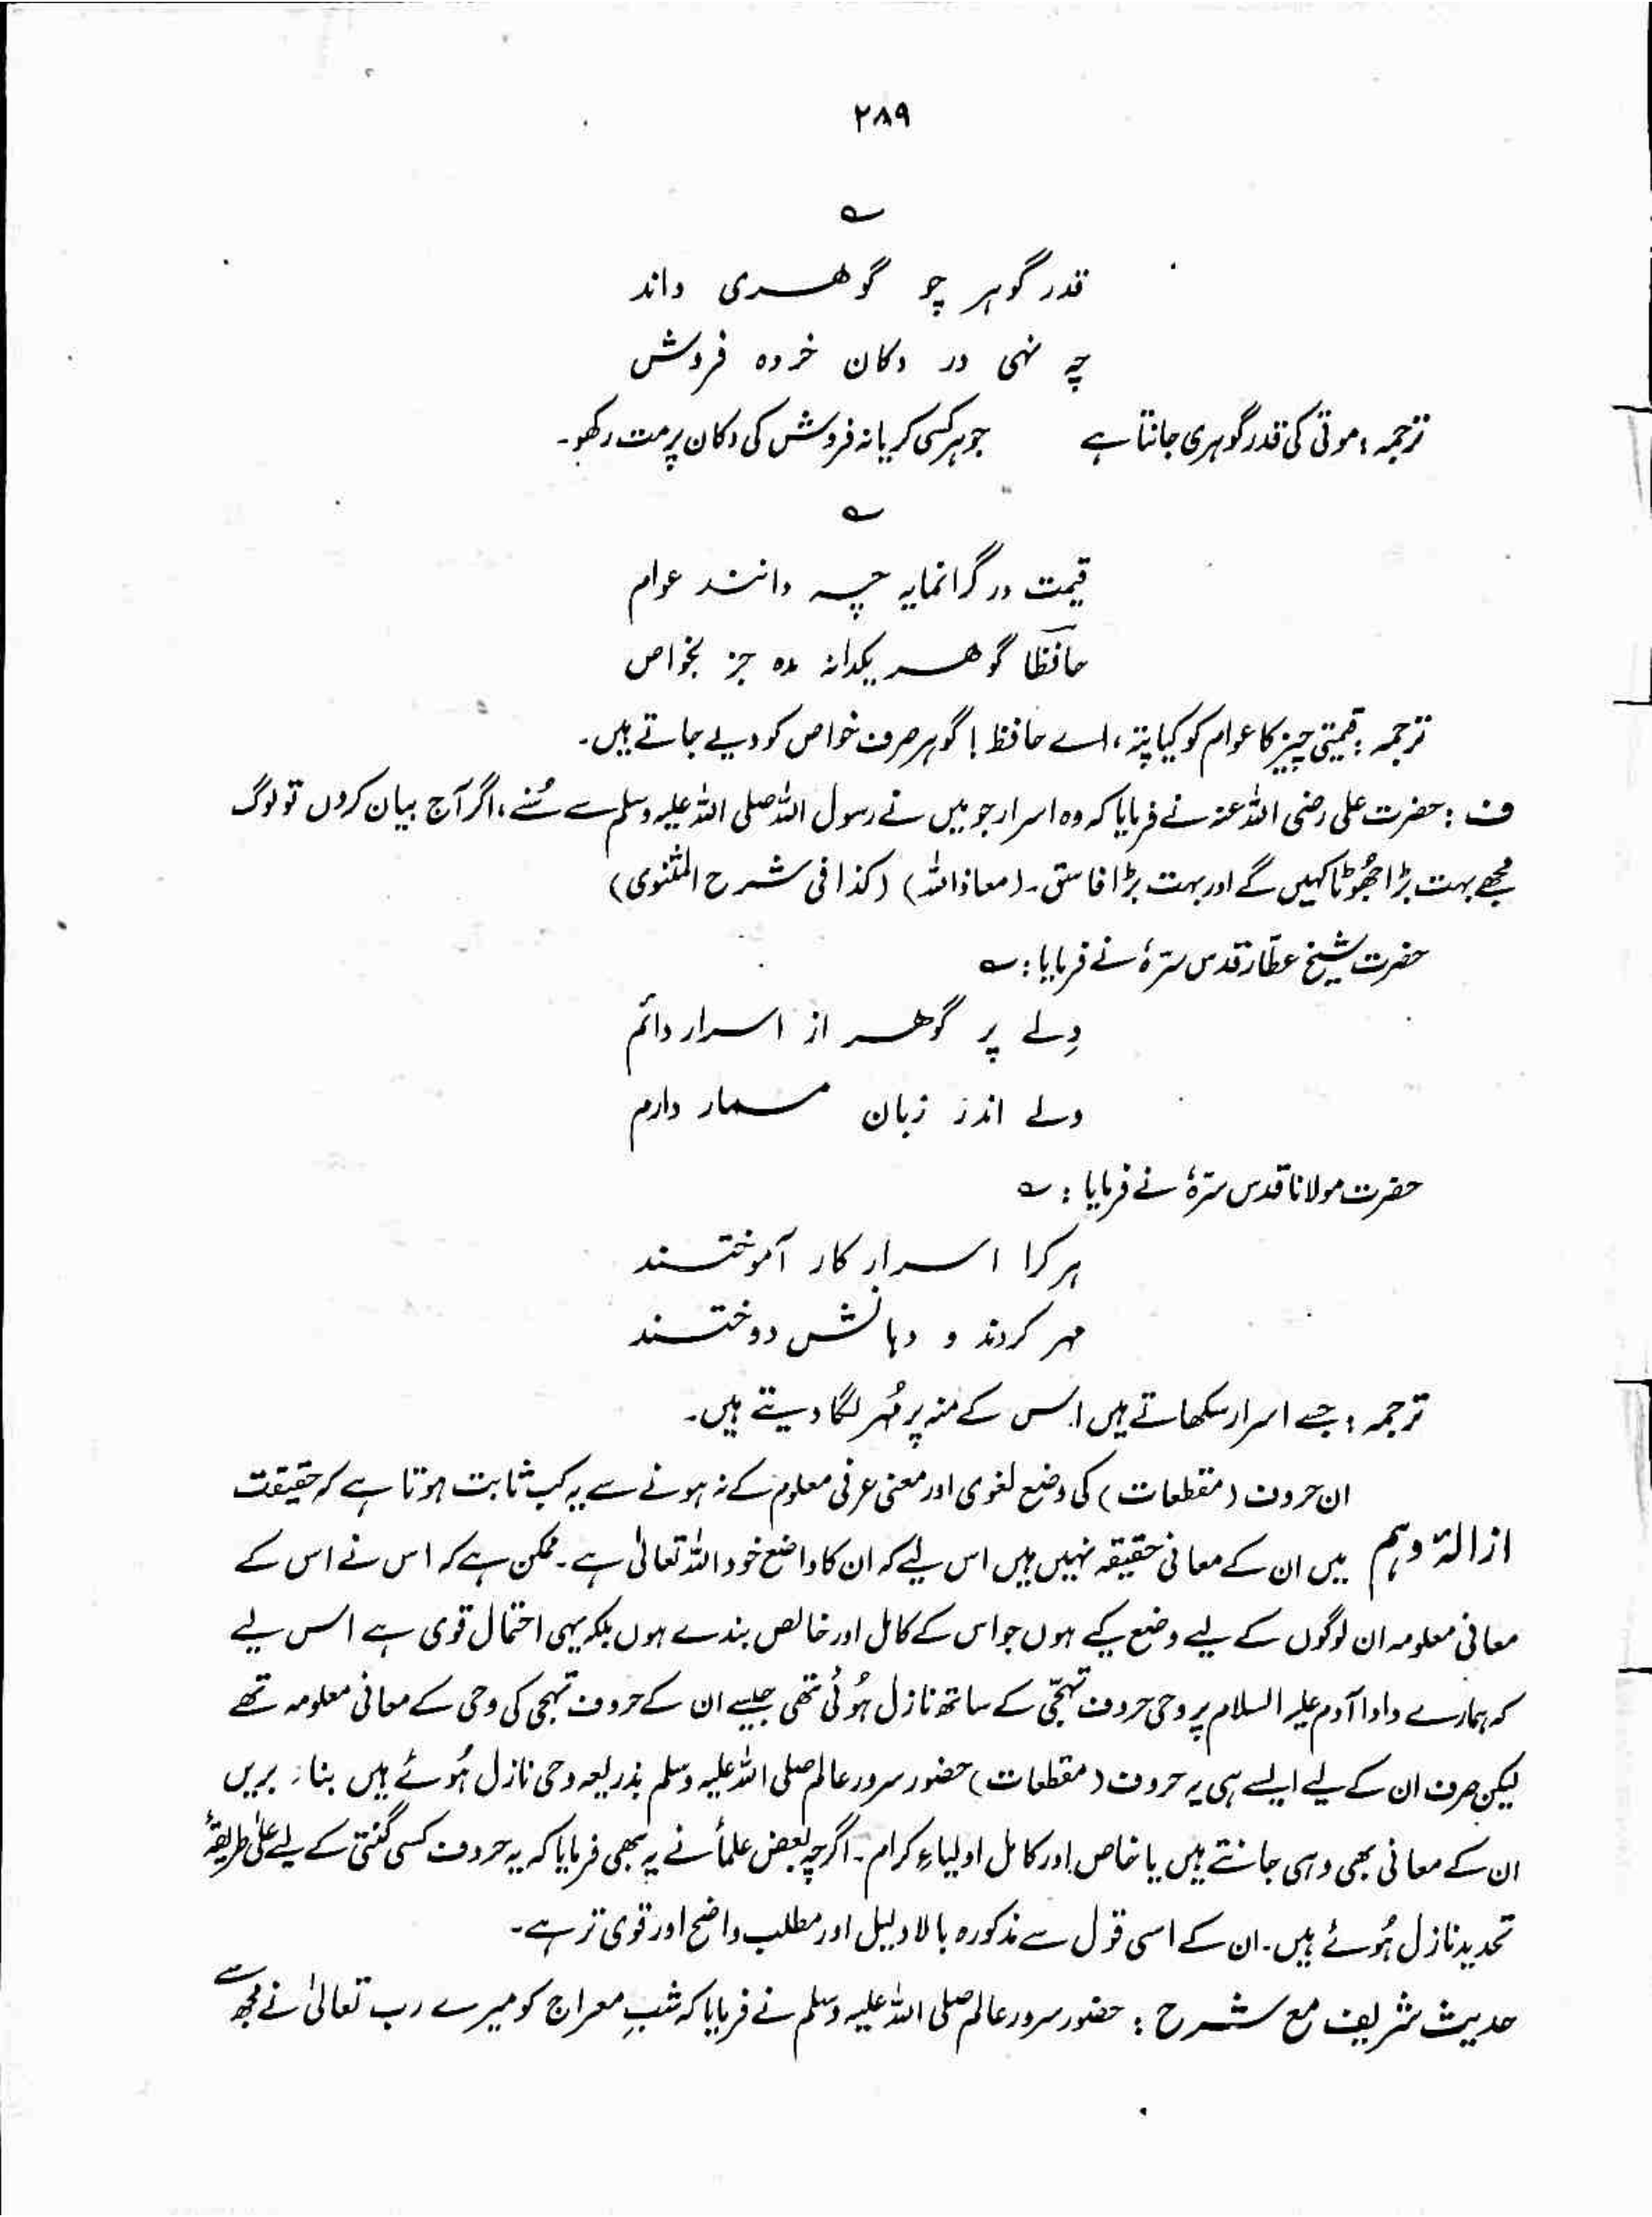 ۲۸۹
؎
قدر گوہر چو گوھری داند
چہ نہی در دکان خردہ فروش
ترجمہ : موتی کی قدر گوہری جانتا ہے جوہر کسی کریانہ فروش کی دکان پر مت رکھو۔
؎
قیمت در گرانمایہ چہ دانند عوام
حافظا گوھر یکدانہ مدہ جز بخواص
ترجمہ : قیمتی چیز کا عوام کو کیا پتہ ، اے حافظ ! گوہر صرف خواص کو دیے جاتے ہیں۔
ف : حضرت علی رضی اللہ عنہ نے فرمایا کہ وہ اسرار جو میں نے رسول اللہ صلی اللہ علیہ وسلم سے سُنے ، اگر آج بیان کروں تو لوگ
مجھے بہت بڑا جھُوٹا کہیں گے اور بہت بڑا فاسق۔ (معاذ اللہ) (کذا فی شرح المثنوی)
حضرت شیخ عطّار قدس سرّہٗ نے فرمایا : ؎
دِلے پر گوھر از اسرار دائم
ولے اندر زبان مسمار دارم
حضرت مولانا قدس سرّہٗ نے فرمایا : ؎
ہر کرا اسرار کار آموختند
مہر کردند و دہانش دوختند
ترجمہ : جسے اسرار سکھاتے ہیں اس کے منہ پر مُہر لگا دیتے ہیں۔
ان حروف (مقطعات) کی وضع لغوی اور معنی عرفی معلوم کے نہ ہونے سے یہ کب ثابت ہوتا ہے کہ حقیقت
ازالۂ وہم میں ان کے معانی حقیقہ نہیں ہیں اس لیے کہ ان کا واضع خود اللہ تعالیٰ ہے۔ ممکن ہے کہ اس نے اس کے
معانی معلومہ ان لوگوں کے لیے وضع کیے ہوں جو اس کے کامل اور خالص بندے ہوں بلکہ یہی احتمال قوی ہے اس لیے
کہ ہمارے دادا آدم علیہ السلام پر وحی حروف تہجّی کے ساتھ نازل ہُوئی تھی جیسے ان کے حروف تہجی کی وحی کے معانی معلومہ تھے
لیکن صرف ان کے لیے ایسے ہی یہ حروف (مقطعات) حضور سرور عالم صلی اللہ علیہ وسلم بذریعہ وحی نازل ہُوئے ہیں بناء بریں
ان کے معانی بھی وہی جانتے ہیں یا خاص اور کامل اولیاءِ کرام۔ اگرچہ بعض علمأ نے یہ بھی فرمایا کہ یہ حروف کسی گنتی کے لیے علیٰ طریقۂ
تحدید نازل ہُوئے ہیں۔ ان کے اسی قول سے مذکورہ بالا دلیل اور مطلب واضح اور قوی تر ہے۔
حدیث شریف مع شرح : حضور سرور عالم صلی اللہ علیہ وسلم نے فرمایا کہ شبِ معراج کو میرے رب تعالیٰ نے مجھ سے